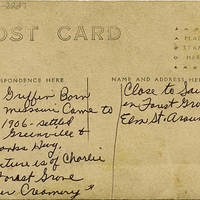 OST CARD
PLACE
STAM
HER
SPONDENCE HERE
NAME AND ADDRESS HE
Griffin Born
Missouri Came to
1906 - settled
Greenville &
anks Hwy.
cture is of Charlie
Forest Grove
er Creamery"
Close to Sai
in Forest Gro
Elm St. Aroun